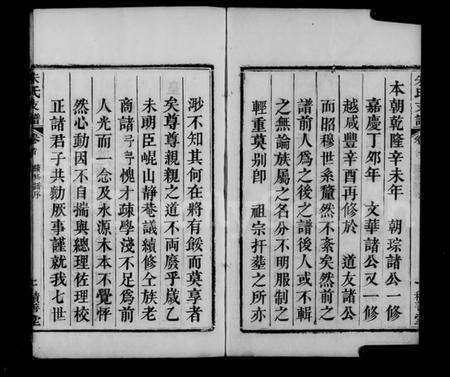 本朝乾隆辛未年　朝琮諸公一修
嘉慶丁卯年　文華諸公又一修
越咸豐辛酉再修於　道友諸公
而昭穆世系釐然不紊矣然前之
譜前人爲之後之譜後人或不輯
之無論族屬之名分不明服制之
輕重莫別即　祖宗扞墓之所亦
渺不知其何在將有餒而莫享者
矣尊尊親親之道不兩廢乎歲乙
未明臣崐山靜菴議續修仝族老
商諸　愧才疎學淺不足爲前
人光而一念及水源木本不覺怦
然心動因不自揣與總理佐理校
正諸君子共勷厥事謹就我七世
朱氏支譜　卷首